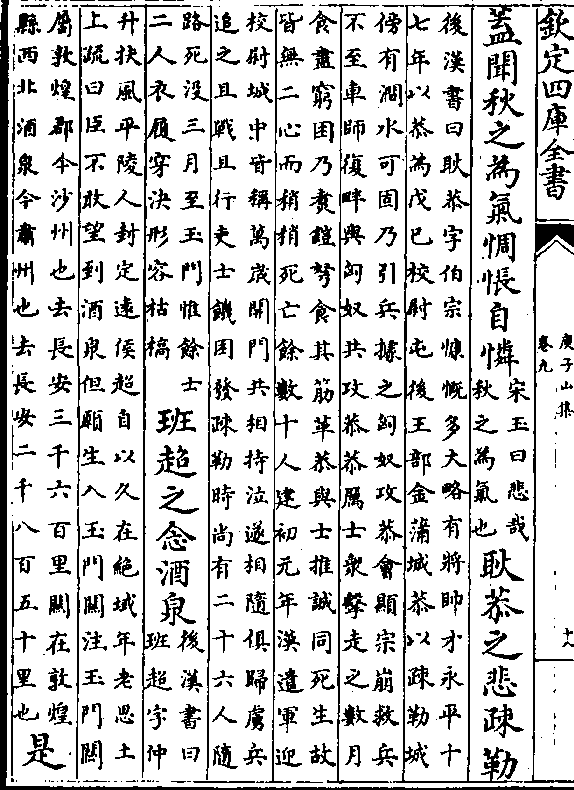 欽定四庫全書
庚子山集
卷九
十八
蓋聞秋之為氣惆悵自憐
宋玉曰悲哉
秋之為氣也
耿恭之悲疎勒
後漢書曰耿恭字伯宗慷慨多大略有將帥才永平十
七年以恭為戊巳校尉屯後王部金蒲城恭以疎勒城
傍有澗水可固乃引兵據之匈奴攻恭會顯宗崩救兵
不至車師復畔與匈奴共攻恭恭厲士衆擊走之數月
食盡窮困乃煑鎧弩食其筋革恭與士推誠同死生故
皆無二心而稍稍死亡餘數十人建初元年漢遣軍迎
校尉城中皆稱萬歲開門共相持泣遂相隨俱歸虜兵
追之且戰且行吏士饑困發疎勒時尚有二十六人隨
路死没三月至玉門惟餘士
二人衣履穿決形容枯槁
班超之念酒泉
後漢書曰
班超字仲
升扶風平陵人封定遠侯超自以久在絶域年老思土
上疏曰臣不敢望到酒泉但願生入玉門關注玉門關
屬敦煌郡今沙州也去長安三千六百里關在敦煌
縣西北酒泉今肅州也去長安二千八百五十里也
是